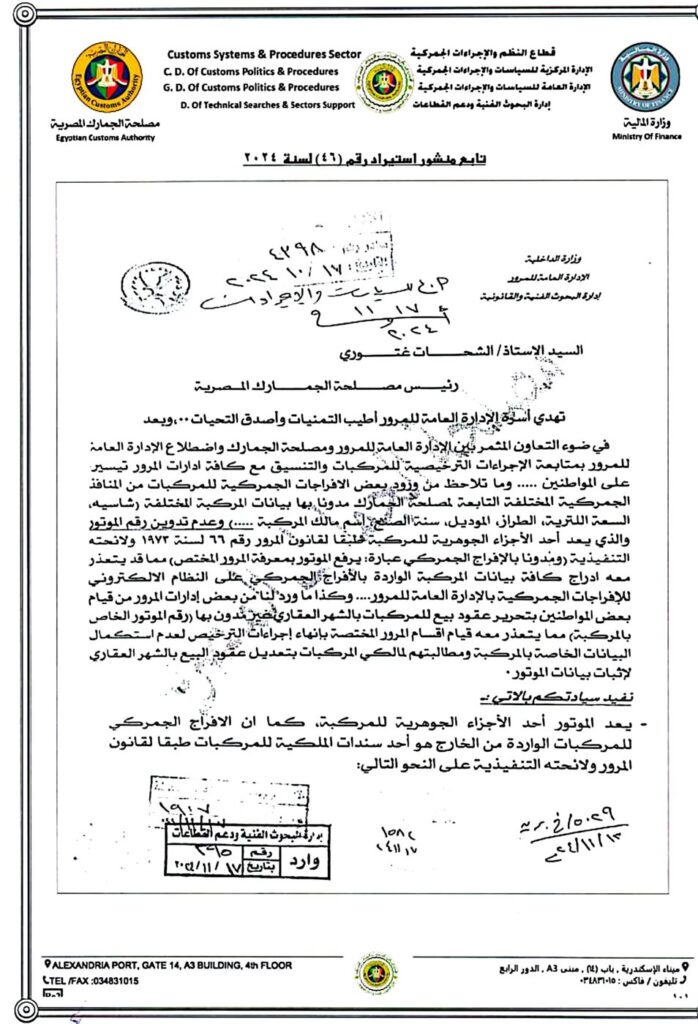 Customs Systems & Procedures Sector
C. D. Of Customs Politics & Procedures
G. D. Of Customs Politics & Procedures
D. Of Technical Searches & Sectors Support
قطاع النظم والإجراءات الجمركية
الإدارة المركزية للسياسات والإجراءات الجمركية
الإدارة العامة للسياسات والإجراءات الجمركية
إدارة البحوث الفنية ودعم القطاعات
Egyptian Customs Authority
مصلحة الجمارك المصرية
Egyptian Customs Authority
MINISTRY OF FINANCE
وزارة المالية
Ministry Of Finance
تابع منشور استيراد رقم (٤٦) لسنة ٢٠٢٤
وزارة الداخلية
الإدارة العامة للمرور
إدارة البحوث الفنية والقانونية
٤٣٩٨
٢٠٢٤/١٠/١٧
١١/١٧
٢٠٢٤
السيد الاستاذ/ الشحات غتوري
رئيس مصلحة الجمارك المصرية
تهدي أسرة الإدارة العامة للمرور أطيب التمنيات وأصدق التحيات ،،، وبعد
في ضوء التعاون المثمر بين الإدارة العامة للمرور ومصلحة الجمارك واضطلاع الإدارة العامة
للمرور بمتابعة الإجراءات الترخيصية للمركبات والتنسيق مع كافة ادارات المرور تيسير
على المواطنين ..... وما تلاحظ من ورود بعض الافراجات الجمركية للمركبات من المنافذ
الجمركية المختلفة التابعة لمصلحة الجمارك مدونا بها بيانات المركبة المختلفة (شاسيه,
السعة اللترية, الطراز, الموديل, سنة الصنع, إسم مالك المركبة .....) وعدم تدوين رقم الموتور
والذي يعد أحد الأجزاء الجوهرية للمركبة طبقا لقانون المرور رقم ٦٦ لسنة ١٩٧٣ ولائحته
التنفيذية (ومدونا بالإفراج الجمركي عبارة: يرفع الموتور بمعرفة المرور المختص) مما قد يتعذر
معه ادراج كافة بيانات المركبة الواردة بالأفراج الجمركي على النظام الالكتروني
للإفراجات الجمركية بالإدارة العامة للمرور.... وكذا ما ورد لنا من بعض إدارات المرور من قيام
بعض المواطنين بتحرير عقود بيع للمركبات بالشهر العقاري غير مدون بها (رقم الموتور الخاص
بالمركبة) مما يتعذر معه قيام اقسام المرور المختصة بإنهاء إجراءات الترخيص لعدم استكمال
البيانات الخاصة بالمركبة ومطالبتهم لمالكي المركبات بتعديل عقود البيع بالشهر العقاري
لإثبات بيانات الموتور.
نفيد سيادتكم بالاتي:-
- يعد الموتور أحد الأجزاء الجوهرية للمركبة, كما ان الافراج الجمركي
للمركبات الواردة من الخارج هو أحد سندات الملكية للمركبات طبقا لقانون
المرور ولائحته التنفيذية على النحو التالي:
١٩٠٧
إدارة البحوث الفنية ودعم القطاعات
وارد
رقم ٣٩٥
بتاريخ ١٧/ ١١/ ٢٠٢٤
١٥٨٢
٢٤/١١/١٢
ALEXANDRIA PORT, GATE 14, A3 BUILDING, 4th FLOOR
TEL /FAX :034831015
ميناء الإسكندرية , باب (١٤) , مبنى A3 , الدور الرابع
تليفون / فاكس : ٠٣٤٨٣١٠١٥
١٠١